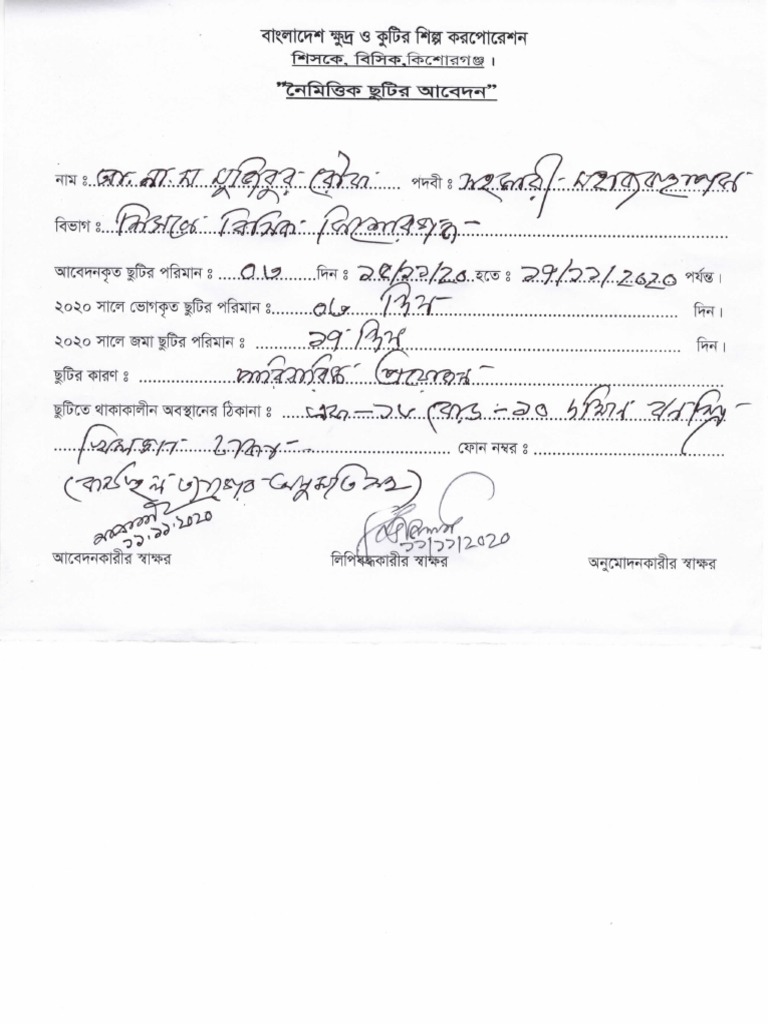 বাংলাদেশ ক্ষুদ্র ও কুটির শিল্প করপোরেশন
শিসকে, বিসিক,কিশোরগঞ্জ ।
"নৈমিত্তিক ছুটির আবেদন"
নাম ঃ আ. ন. ম মুজিবুর রৌফ পদবী ঃ সহকারী মহাব্যবস্থাপক
বিভাগ ঃ শিসকে বিসিক কিশোরগঞ্জ
আবেদনকৃত ছুটির পরিমান ঃ ০৩ দিন ঃ ১৫/১১/২০ হতে ঃ ১৭/১১/২০২০ পর্যন্ত।
২০২০ সালে ভোগকৃত ছুটির পরিমান ঃ ০৩ দিন দিন।
২০২০ সালে জমা ছুটির পরিমান ঃ ১৭ দিন দিন।
ছুটির কারণ ঃ পারিবারিক প্রয়োজন
ছুটিতে থাকাকালীন অবস্থানের ঠিকানা ঃ রোড-১০ দক্ষিন বনশ্রী
খিলগাও ঢাকা ফোন নম্বর ঃ
(কর্মস্থল ত্যাগের অনুমতিসহ)
১১.১১.২০২০
১১/১১/২০২০
আবেদনকারীর স্বাক্ষর লিপিবদ্ধকারীর স্বাক্ষর অনুমোদনকারীর স্বাক্ষর